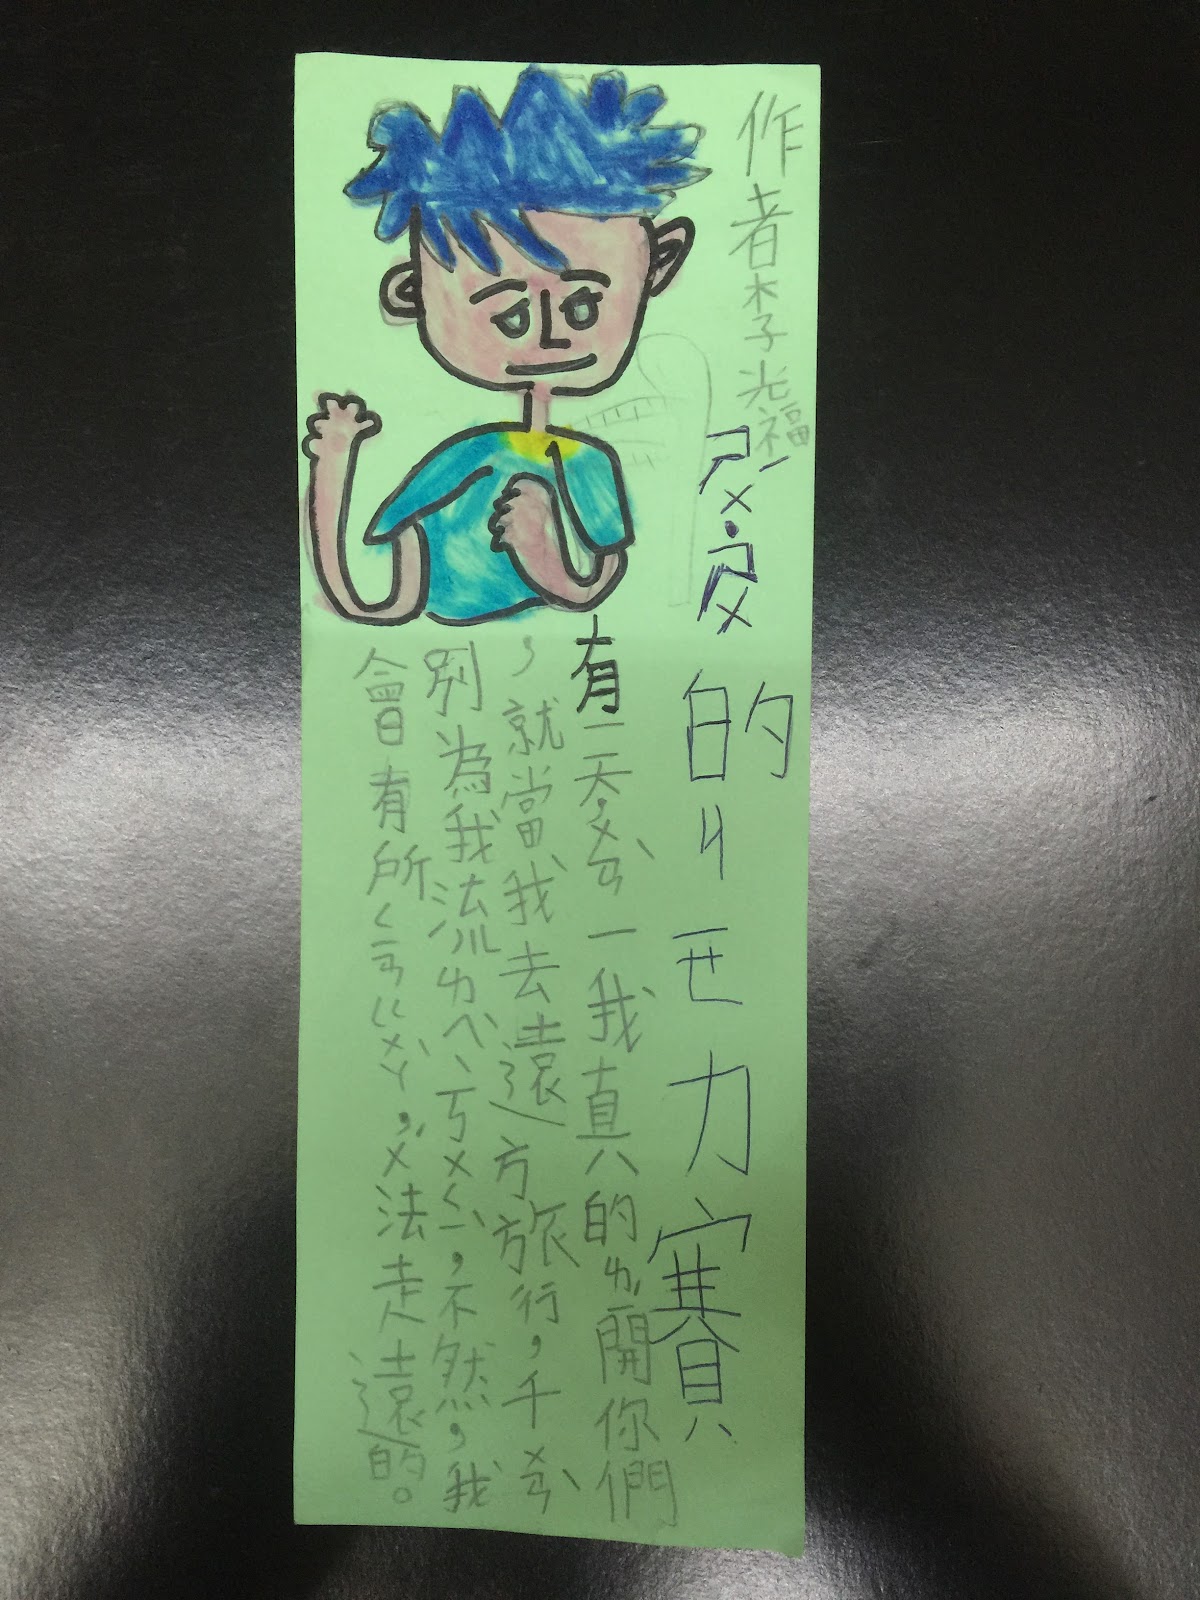 作者李光福
ㄕㄨˊ˙ㄕㄨ的ㄐㄧㄝ力賽
有一天，ㄨㄢˋ一我真的ㄌㄧˊ開你們
，就當我去遠方旅行，千ㄨㄢˋ
別為我流ㄌㄟˋ、ㄎㄨㄑㄧˋ，不然，我
會有所ㄑㄧㄢㄍㄨㄚˋ，ㄨˊ法走遠的。